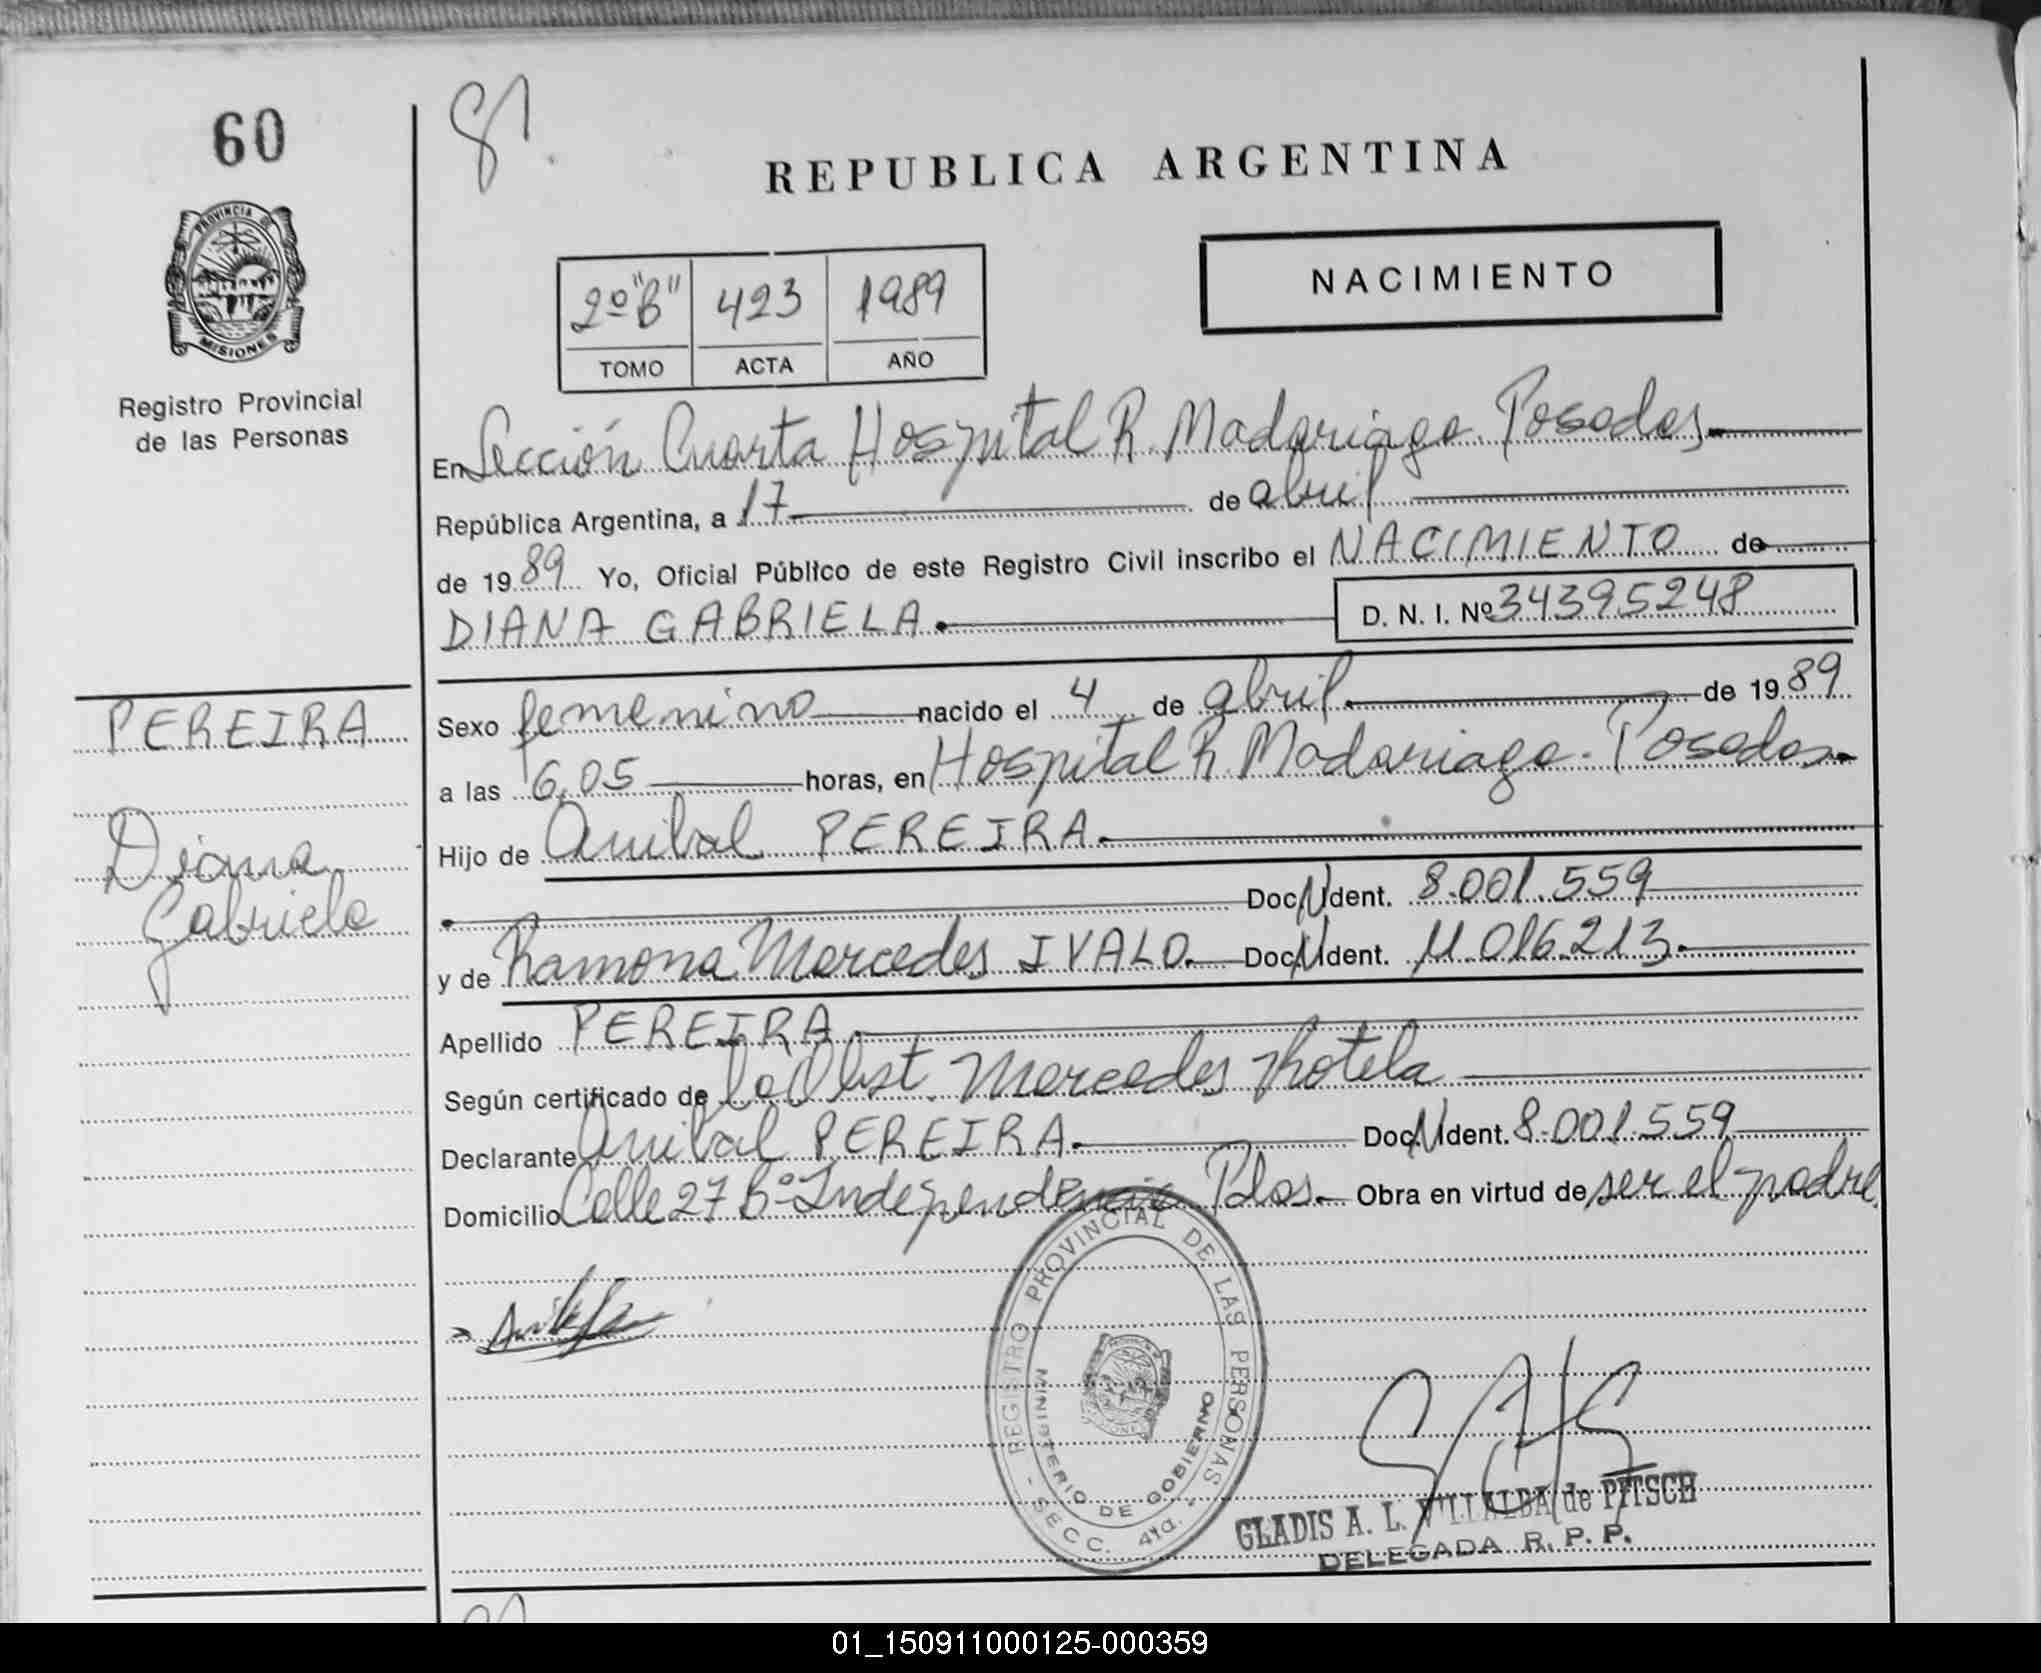 60
PROVINCIA DE
MISIONES
Registro Provincial
de las Personas
PEREIRA
Diana
Gabriela
REPUBLICA ARGENTINA
NACIMIENTO
2º "B" 423 1989
TOMO ACTA AÑO
En Sección Cuarta Hospital R. Madariaga. Posadas
República Argentina, a 17 de abril
de 1989 Yo, Oficial Público de este Registro Civil inscribo el NACIMIENTO de
DIANA GABRIELA. D. N. I. Nº 34395248
Sexo femenino nacido el 4 de abril de 1989
a las 6,05 horas, en Hospital R. Madariaga. Posadas
Hijo de Anibal PEREIRA.
Doc. Ident. 8.001.559
y de Ramona Mercedes IVALO. Doc. Ident. 11.016.213.
Apellido PEREIRA.
Según certificado de la Obst. Mercedes Rotela
Declarante Anibal PEREIRA. Doc. Ident. 8.001.559
Domicilio Calle 27 Bº Independencia Pdas. Obra en virtud de ser el padre.
REGISTRO PROVINCIAL DE LAS PERSONAS
MINISTERIO DE GOBIERNO
- SECC. 4ta. -
GLADIS A. L. VILLALBA de PITSCH
DELEGADA R. P. P.
01_150911000125-000359